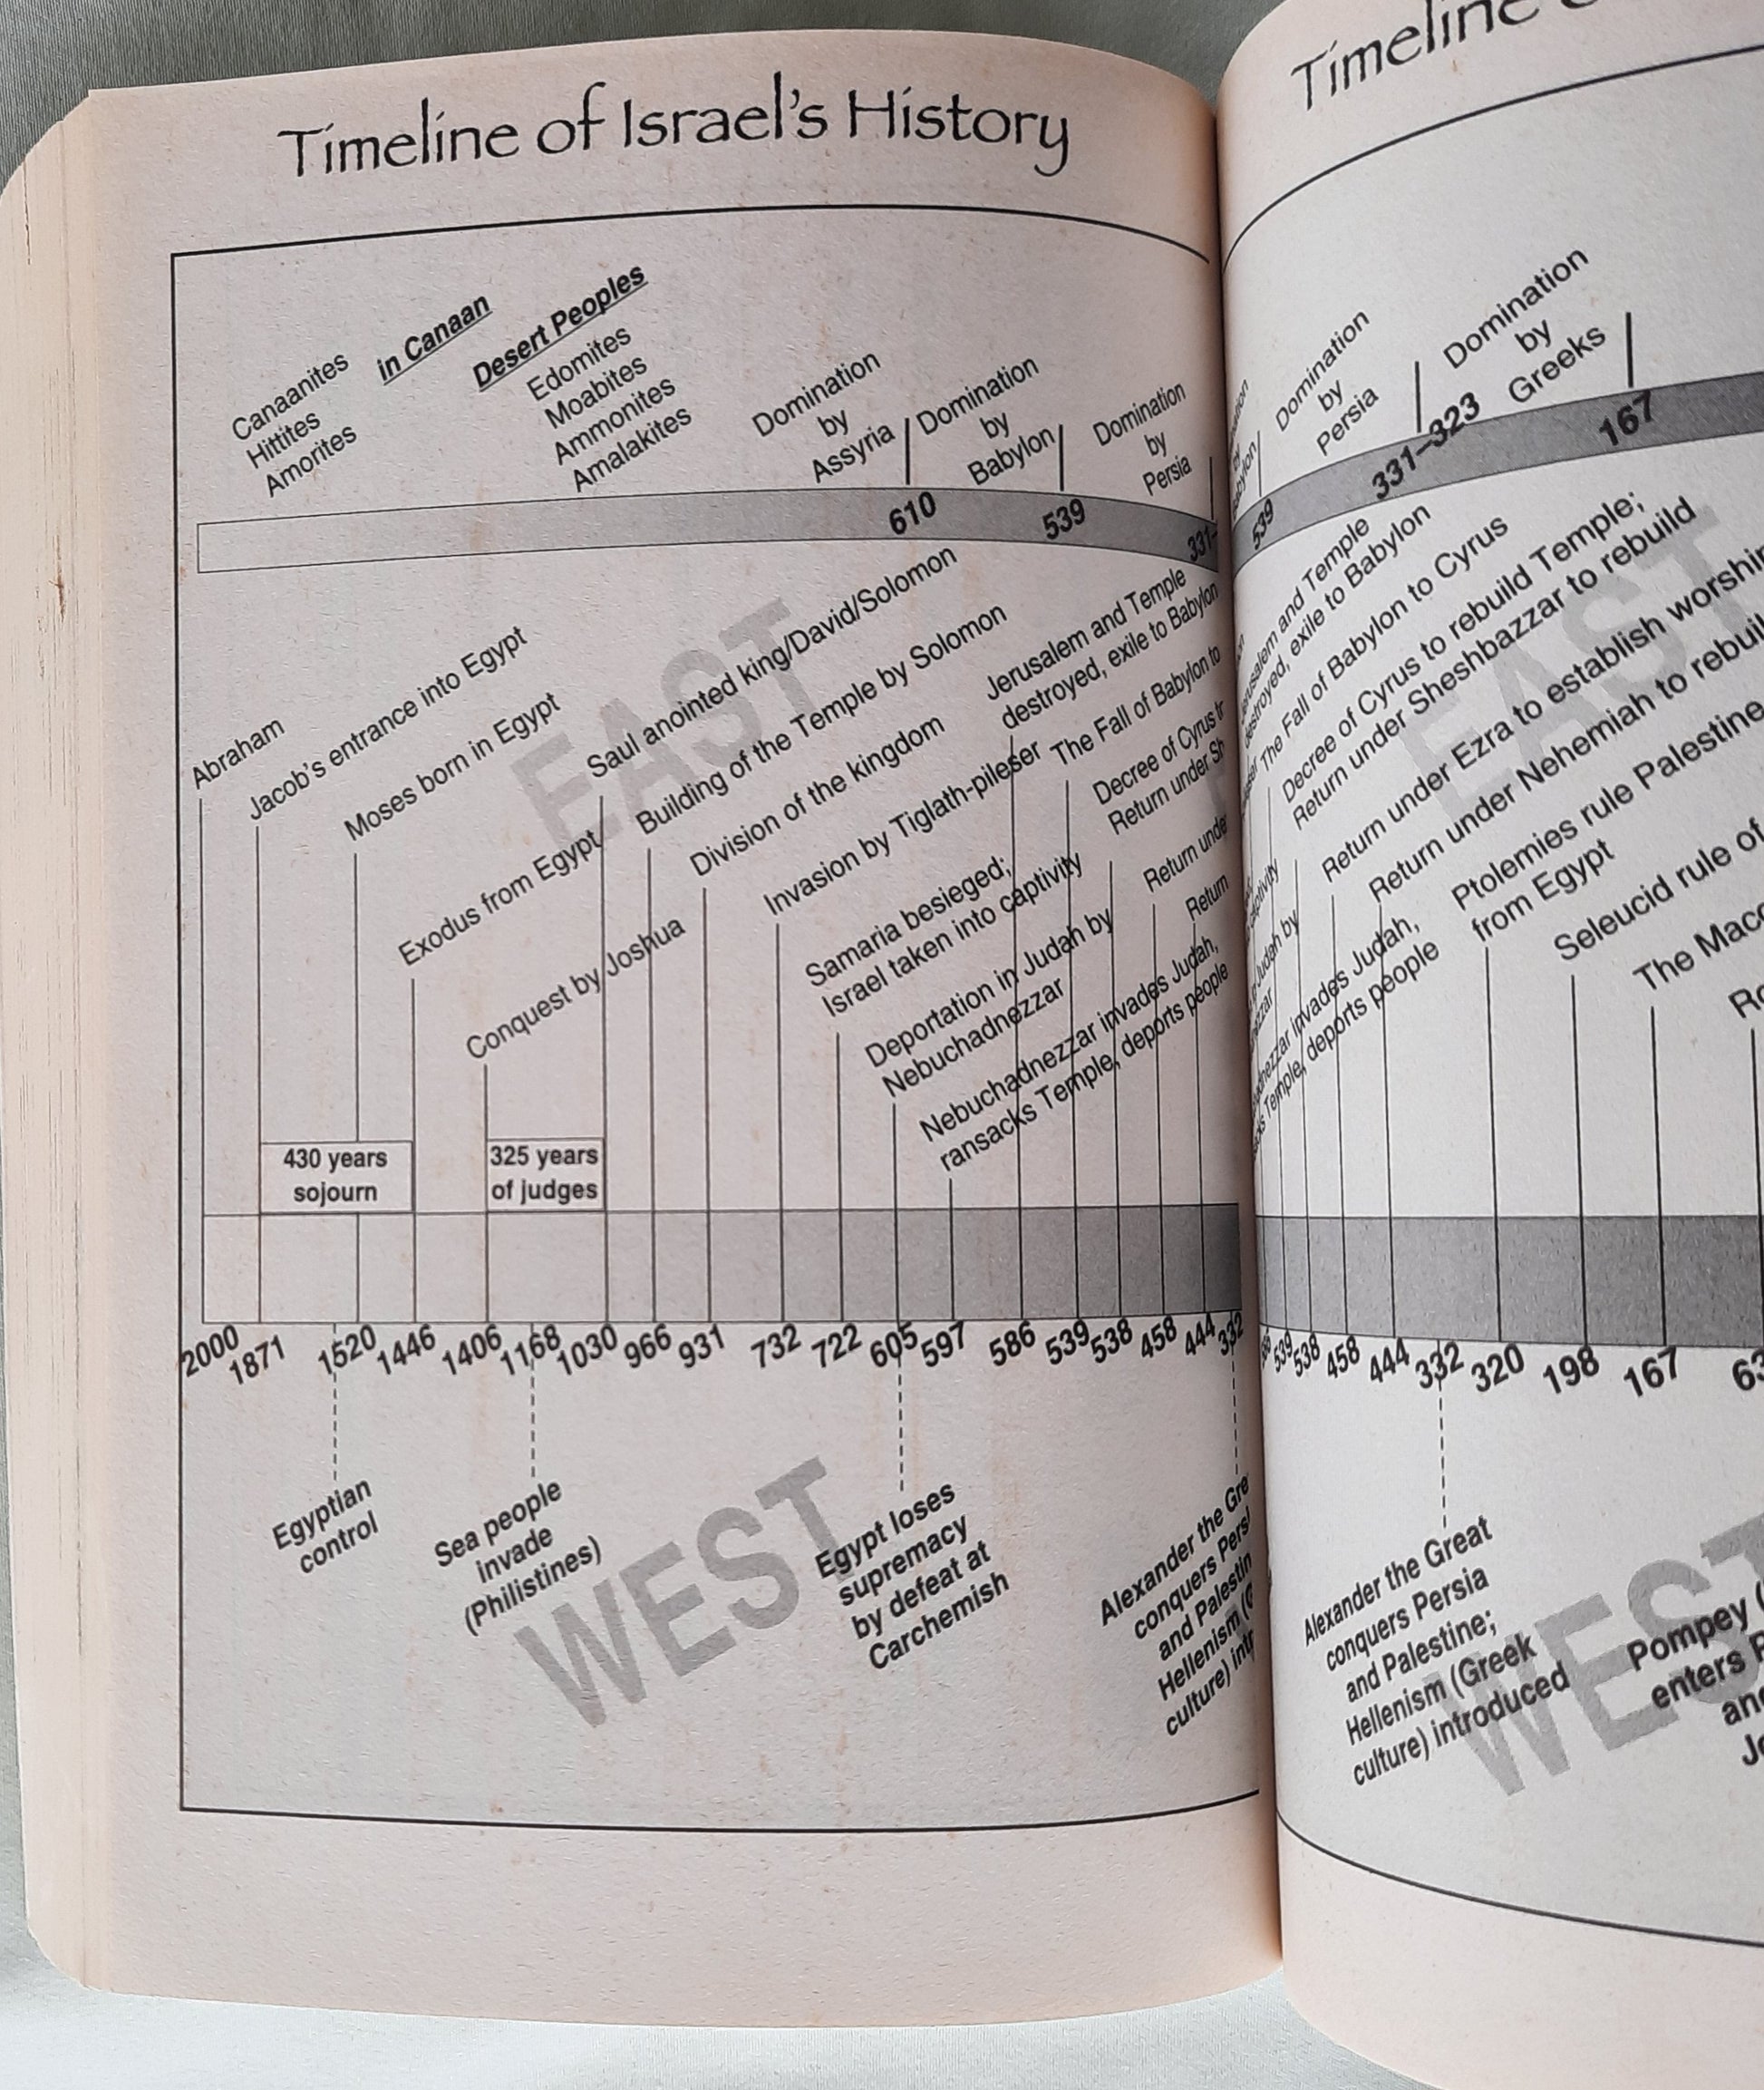 Timeline of Israel's History
Canaanites
Hittites
Amorites
in Canaan
Desert Peoples
Edomites
Moabites
Ammonites
Amalakites
Domination
by
Assyria
Domination
by
Babylon
Domination
by
Persia
610
539
331–
EAST
Abraham
Jacob's entrance into Egypt
Moses born in Egypt
Exodus from Egypt
Conquest by Joshua
Saul anointed king/David/Solomon
Building of the Temple by Solomon
Division of the kingdom
Invasion by Tiglath-pileser
Samaria besieged;
Israel taken into captivity
Deportation in Judah by
Nebuchadnezzar
Nebuchadnezzar invades Judah,
ransacks Temple, deports people
Jerusalem and Temple
destroyed, exile to Babylon
The Fall of Babylon to
Decree of Cyrus
Return under
Return under
Return
430 years
sojourn
325 years
of judges
2000 1871 1520 1446 1406 1168 1030 966 931 732 722 605 597 586 539 538 458 444 332
Egyptian
control
Sea people
invade
(Philistines)
WEST
Egypt loses
supremacy
by defeat at
Carchemish
Alexander the
conquers
and
Hellenism
culture)
Timeline
Domination
by
Persia
Domination
by
Greeks
539
331–323
167
EAST
Jerusalem and Temple
destroyed, exile to Babylon
The Fall of Babylon to Cyrus
Decree of Cyrus to rebuild Temple;
Return under Sheshbazzar to rebuild
Return under Ezra to establish worship
Return under Nehemiah to rebuild
Ptolemies rule Palestine
from Egypt
Seleucid rule of
The
Judah by
invades Judah,
Temple, deports people
586 539 538 458 444 332 320 198 167 63
Alexander the Great
conquers Persia
and Palestine;
Hellenism (Greek
culture) introduced
WEST
Pompey
enters